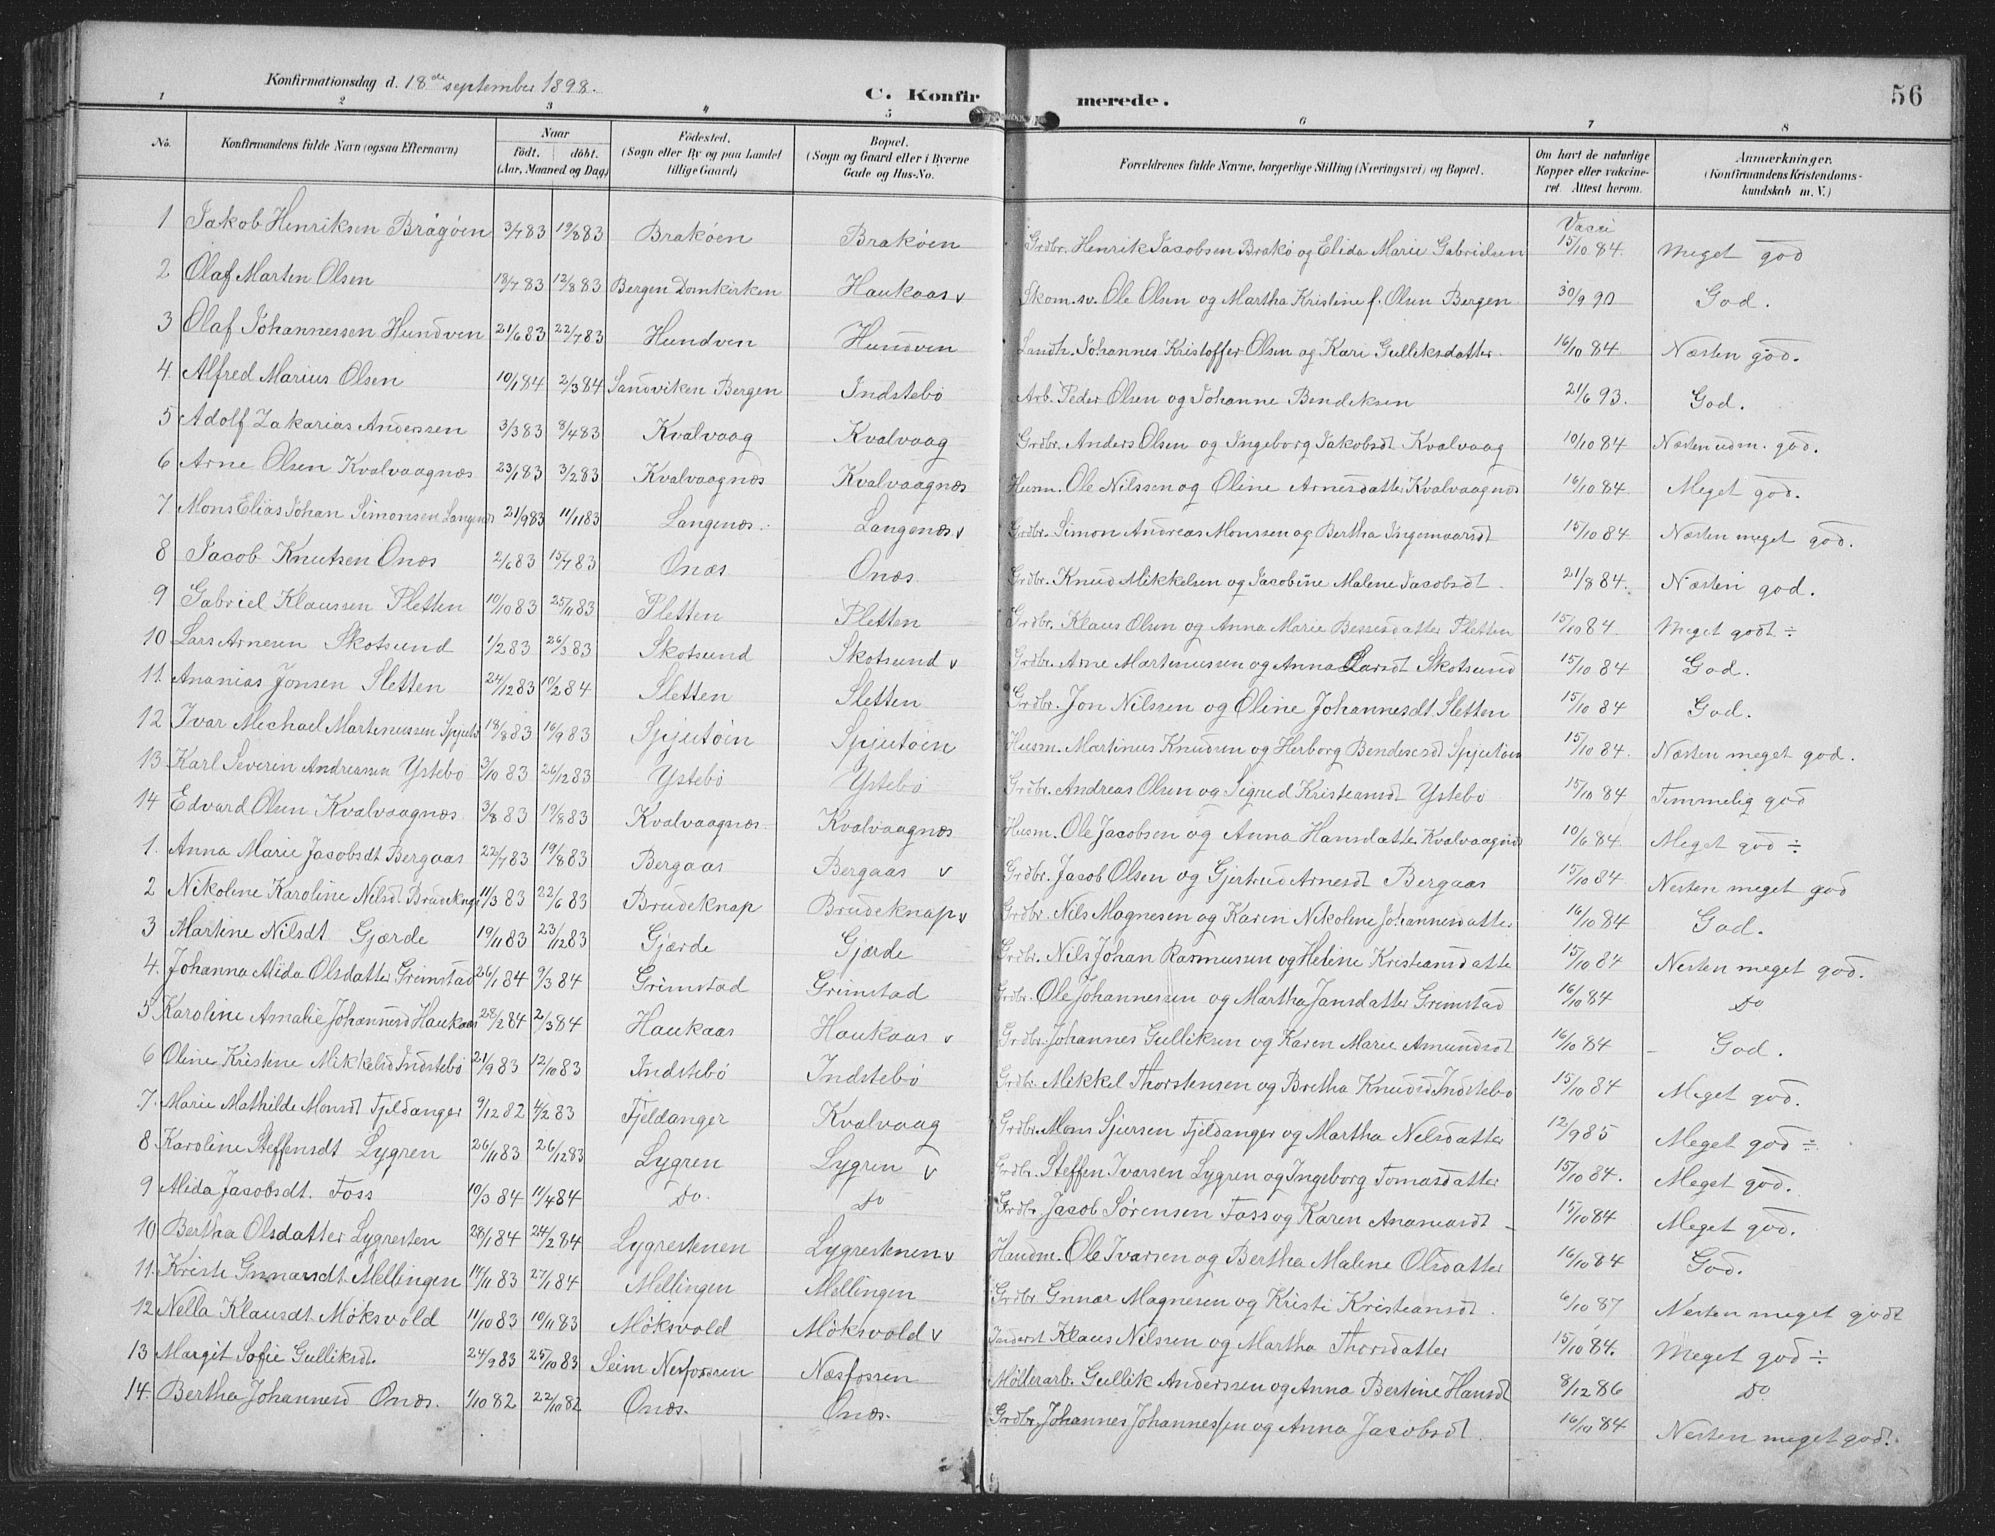 Konfirmationsdag d. 18de september 1898.
C. Konfirmerede.
56
1 2 3 4 5 6 7 8
No. | Konfirmandens fulde Navn (ogsaa Efternavn) | Naar födt. döbt. (Aar, Maaned og Dag) | Födested. (Sogn eller By og paa Landet tillige Gaard) | Bopæl. (Sogn og Gaard eller i Byerne Gade og Hus-No. | Forældrenes fulde Navne, borgerlige Stilling (Næringsvei) og Bopæl. | Om havt de naturlige Kopper eller vakcineret. Attest herom. | Anmærkninger. (Konfirmandens Kristendomskundskab m. V.)
1 Jakob Henriksen Brågøen 3/7 83 19/8 83 Brakøen Brakøen Grdbr. Henrik Jacobsen Brakø og Elida Marie Gabrielsen Vacci 15/10 84. Meget god
2 Olaf Marten Olsen 13/7 83 12/8 83 Bergen Domkirken Haukaas v Skom. sv. Ole Olsen og Martha Kristine f. Olsen Bergen 30/9 90 God.
3 Olaf Johannessen Hundven 21/6 83 22/7 83 Hundven Hundven Landh. Johannes Kristoffer Olsen og Kari Gulliksdatter 16/10 84. Næsten god.
4. Alfred Marius Olsen 10/1 84 2/3 84 Sandviken Bergen Indstebø Arb. Peder Olsen og Johanne Bendiksen 21/6 93. God.
5 Adolf Zakarias Anderssen 3/3 83 8/4 83 Kvalvaag Kvalvaag Grdbr. Anders Olsen og Ingeborg Jakobsdt Kvalvaag 10/10 84 Næsten udm. god.
6 Arne Olsen Kvalvaagnæs 23/1 83 3/2 83 Kvalvaagnæs Kvalvaagnæs Husm. Ole Nilssen og Oline Arnesdatter Kvalvaagnæs 16/10 84. Meget god.
7 Mons Elias Johan Simonsen Langenæs 21/9 83 11/11 83 Langenæs. Langenæs v Grdbr. Simon Andreas Monssen og Bertha Ingemaarsdt 15/10 84 Næsten meget god.
8 Jacob Knutsen Onæs 2/6 83 15/7 83 Onæs Onæs. Grdbr. Knud Mikkelsen og Jacobine Malene Jacobsdt. 21/8 84. Næsten god.
9 Gabriel Klaussen Sletten 10/10 83 25/11 83 Sletten Sletten Grdbr. Klaus Olsen og Anna Marie Bessesdatter Sletten 15/10 84. Meget godt ÷
10 Lars Arnesen Skotsund 1/2 83 26/3 83 Skotsund Skotsund v Grdbr. Arne Martenussen og Anna Larsdt Skotsund 15/10 84 God.
11. Ananias Jonsen Sletten 24/12 83 10/2 84 Sletten Sletten Grdbr. Jon Nilssen og Oline Johannesdt Sletten 15/10 84 God.
12 Ivar Michael Martenussen Spjutø 18/8 83 16/9 83 Spjutøin Spjutøin Husm. Martinus Knudsen og Herborg Bendixsdt Spjutøen 15/10 84. Næsten meget god.
13 Karl Severin Andreassen Ystebø 3/10 83 26/12 83 Ystebø Ystebø Grdbr. Andreas Olsen og Sigrud Kristiansdt Ystebø 15/10 84 Temmelig god
14 Edvard Olsen Kvalvaagnæs 3/8 83 19/8 83 Kvalvaagnæs. Kvalvaagnæs Husm. Ole Jacobsen og Anna Hansdatter Kvalvaagnæs 10/6 84. Meget god ÷
1. Anna Marie Jacobsdt Bergaas 22/7 83 19/8 83 Bergaas Bergaas v Grdbr. Jacob Olsen og Gjertrud Arnesdt Bergaas 15/10 84. Nesten meget god
2 Nikoline Karoline Nilsdt Brudeknap 11/3 83 22/6 83 Brudeknap Brudeknap v Grdbr. Nils Magnesen og Karen Nikoline Johannesdatter 16/10 84 God.
3 Martine Nilsdt Gjærde 19/11 83 23/12 83 Gjærde Gjærde Grdbr. Nils Johan Rasmussen og Helene Kristiansdatte 15/10 84 Nesten meget god.
4. Johanna Mida Olsdatter Grimstad 26/1 84 9/3 84 Grimstad Grimstad Grdbr. Ole Johannessen og Martha Jansdatter Grimstad 16/10 84 Do
5 Karoline Amalie Johannesd Haukaas 28/2 84 2/3 84 Haukaas Haukaas v Grdbr. Johannes Gulliksen og Karen Marie Amundsdt 16/10 84 God.
6 Oline Kristine Mikkelsd Indstebø 21/9 83 12/10 83 Indstebø Indstebø Grdbr. Mikkel Thorstensen og Bretha Knudsd Indstebø 15/10 84 Meget god.
7. Marie Mathilde Monsdt Fjeldanger 9/12 82 4/2 83 Fjeldanger Kvalvaag Grdbr. Mons Sjursen Fjeldanger og Martha Nelsdatter 12/9 85 Meget god ÷
8 Karoline Steffensdt Lygren 26/11 83 26/12 83 Lygren Lygren v Grdbr. Steffen Ivarsen Lygren og Ingeborg Tomasdatter 15/10 84. Meget god.
9 Mida Jacobsdt. Foss 10/3 84 11/4 84 Do. Do Grdbr. Jacob Sørensen Foss og Karen Ananiasdt 15/10 84 Meget god.
10 Bertha Olsdatter Lygresten 28/1 84 24/2 84 Lygrestenen Lygrestenen v Handm. Ole Ivarsen og Bertha Malene Olsdatter 16/10 84 God.
11. Kristi Gunnarsdt. Mellingen 14/11 83 27/1 84 Mellingen Mellingen Grdbr. Gunnar Magnesen og Kristi Kristiansdt. 6/10 87 Nesten meget godt
12 Nella Klausdt Møksvold 11/10 83 10/11 83 Møksvold Møksvold v Inderst Klaus Nilssen og Martha Thorsdatter 15/10 84. Meget god ÷
13 Margit Sofie Gulliksdt. 24/9 83 25/10 83 Seim Nesfossen Næsfossen Møllerarb. Gullik Anderssen og Anna Bertine Hansdt 8/12 86 Do
14. Bertha Johannesd Onæs. 1/10 82 22/10 82 Onæs. Onæs. Grdbr. Johannes Johannessen og Anna Jacobsdt 16/10 84 Nesten meget god.